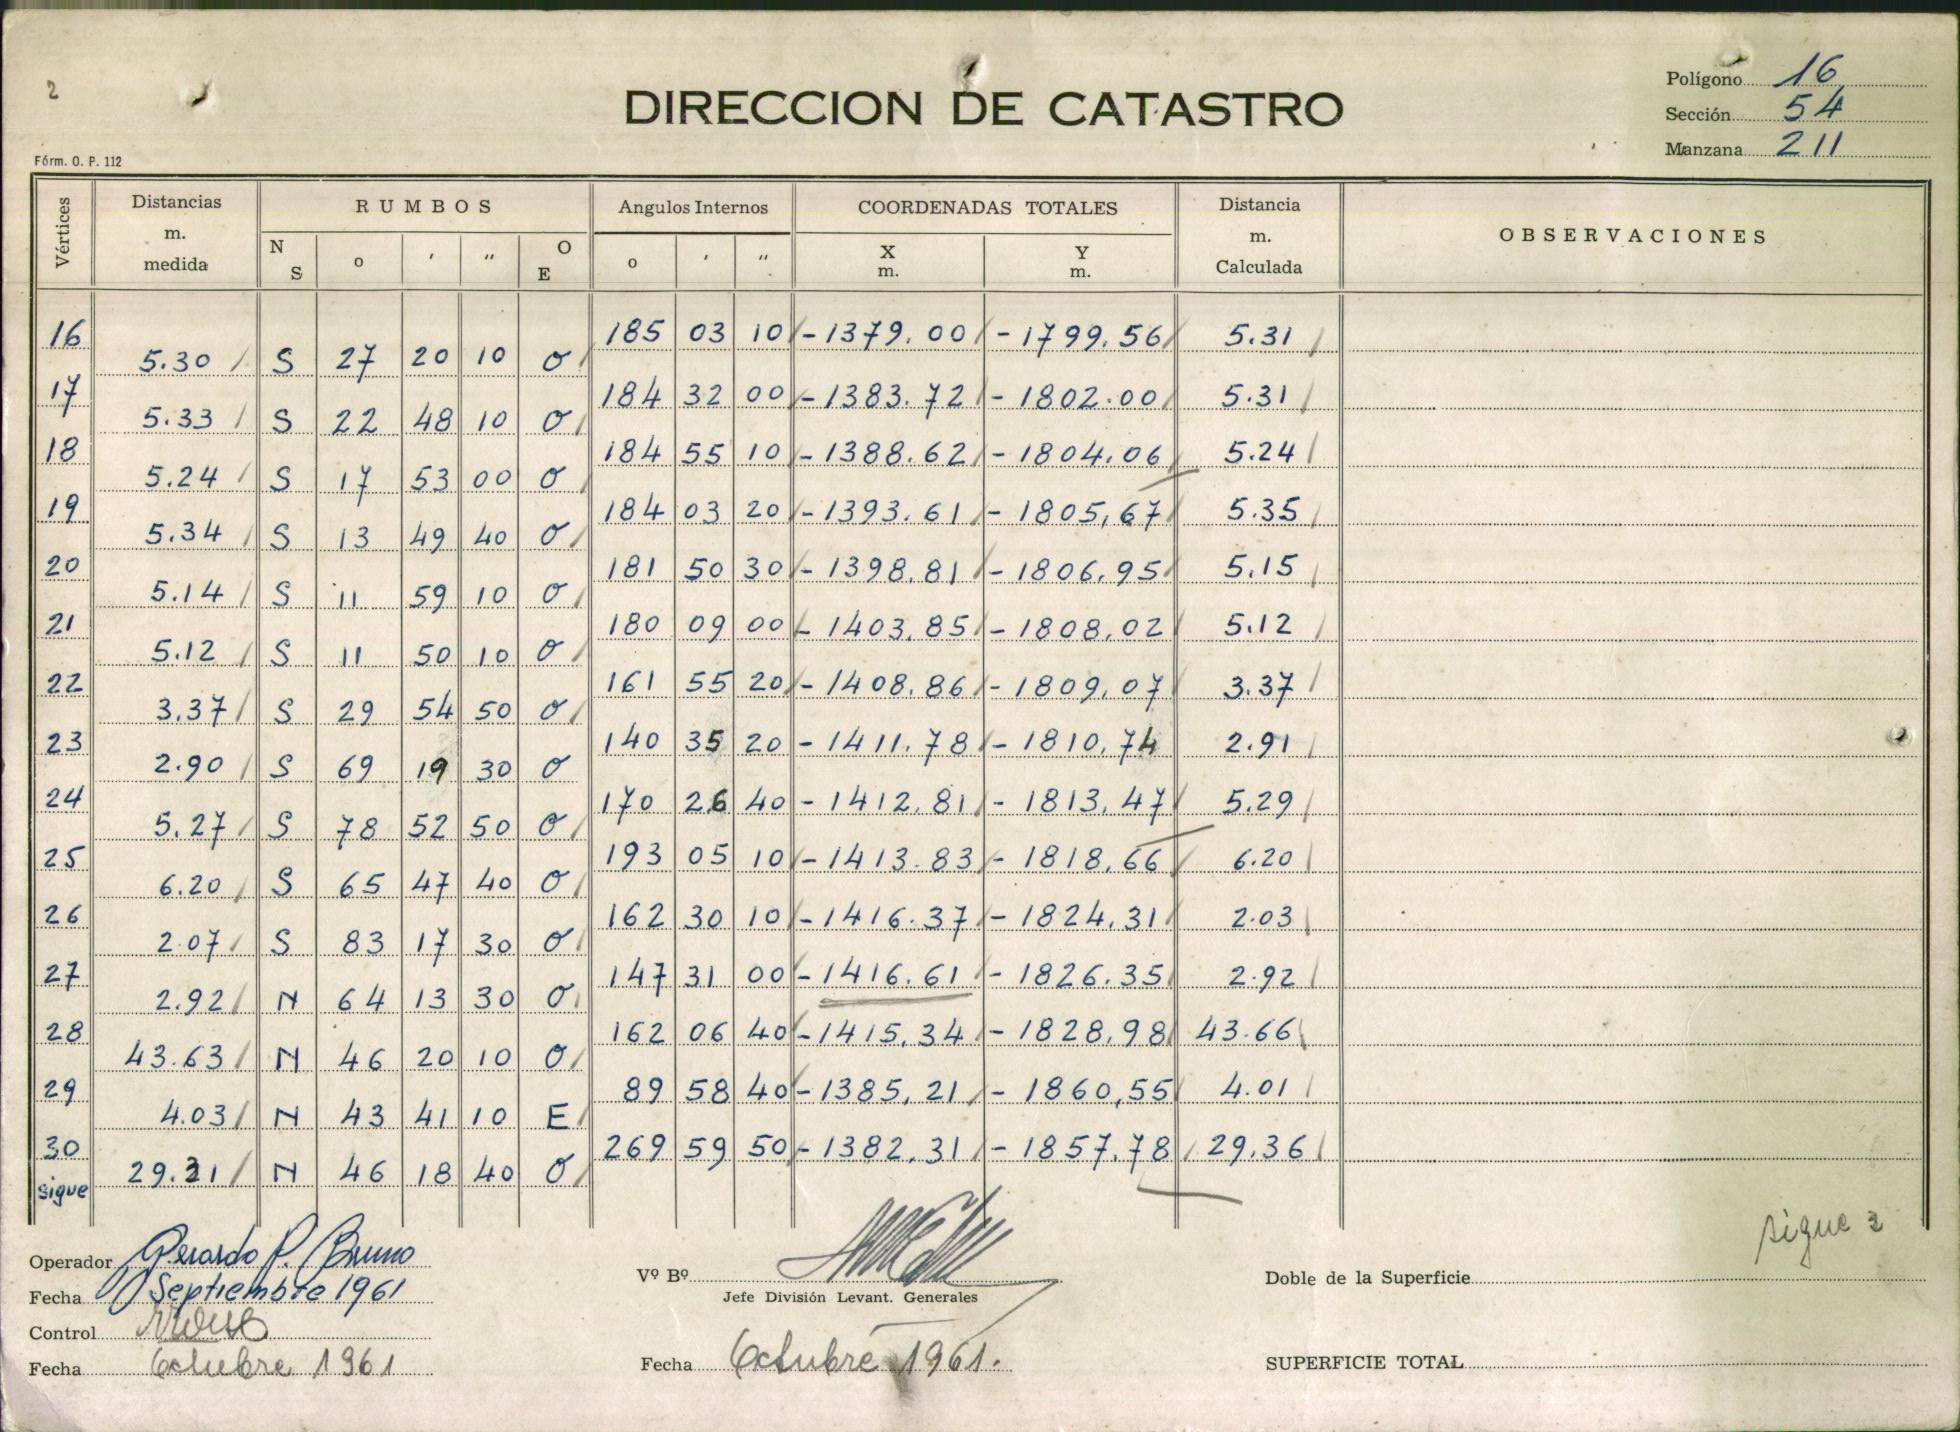 2
DIRECCION DE CATASTRO
Polígono 16
Sección 54
Manzana 211
Fórm. O. P. 112
Vértices Distancias m. medida RUMBOS Angulos Internos COORDENADAS TOTALES Distancia m. Calculada OBSERVACIONES
N S o ′ ″ O E o ′ ″ X m. Y m.
16 185 03 10 -1379.00 -1799.56 5.31
5.30 S 27 20 10 O
17 184 32 00 -1383.72 -1802.00 5.31
5.33 S 22 48 10 O
18 184 55 10 -1388.62 -1804.06 5.24
5.24 S 17 53 00 O
19 184 03 20 -1393.61 -1805,67 5.35
5.34 S 13 49 40 O
20 181 50 30 -1398.81 -1806.95 5.15
5.14 S 11 59 10 O
21 180 09 00 -1403.85 -1808.02 5.12
5.12 S 11 50 10 O
22 161 55 20 -1408.86 -1809.07 3.37
3.37 S 29 54 50 O
23 140 35 20 -1411.78 -1810.74 2.91
2.90 S 69 19 30 O
24 170 26 40 -1412.81 -1813.47 5.29
5.27 S 78 52 50 O
25 193 05 10 -1413.83 -1818.66 6.20
6.20 S 65 47 40 O
26 162 30 10 -1416.37 -1824.31 2.03
2.07 S 83 17 30 O
27 147 31 00 -1416.61 -1826.35 2.92
2.92 N 64 13 30 O
28 162 06 40 -1415.34 -1828.98 43.66
43.63 N 46 20 10 O
29 89 58 40 -1385,21 -1860,55 4.01
4.03 N 43 41 10 E
30 269 59 50 -1382.31 -1857.78 29.36
sigue 29.31 N 46 18 40 O
sigue 3
Operador Gerardo P. Bruno
Fecha Septiembre 1961
Control
Fecha Octubre 1961
Vº Bº
Jefe División Levant. Generales
Fecha Octubre 1961.
Doble de la Superficie
SUPERFICIE TOTAL